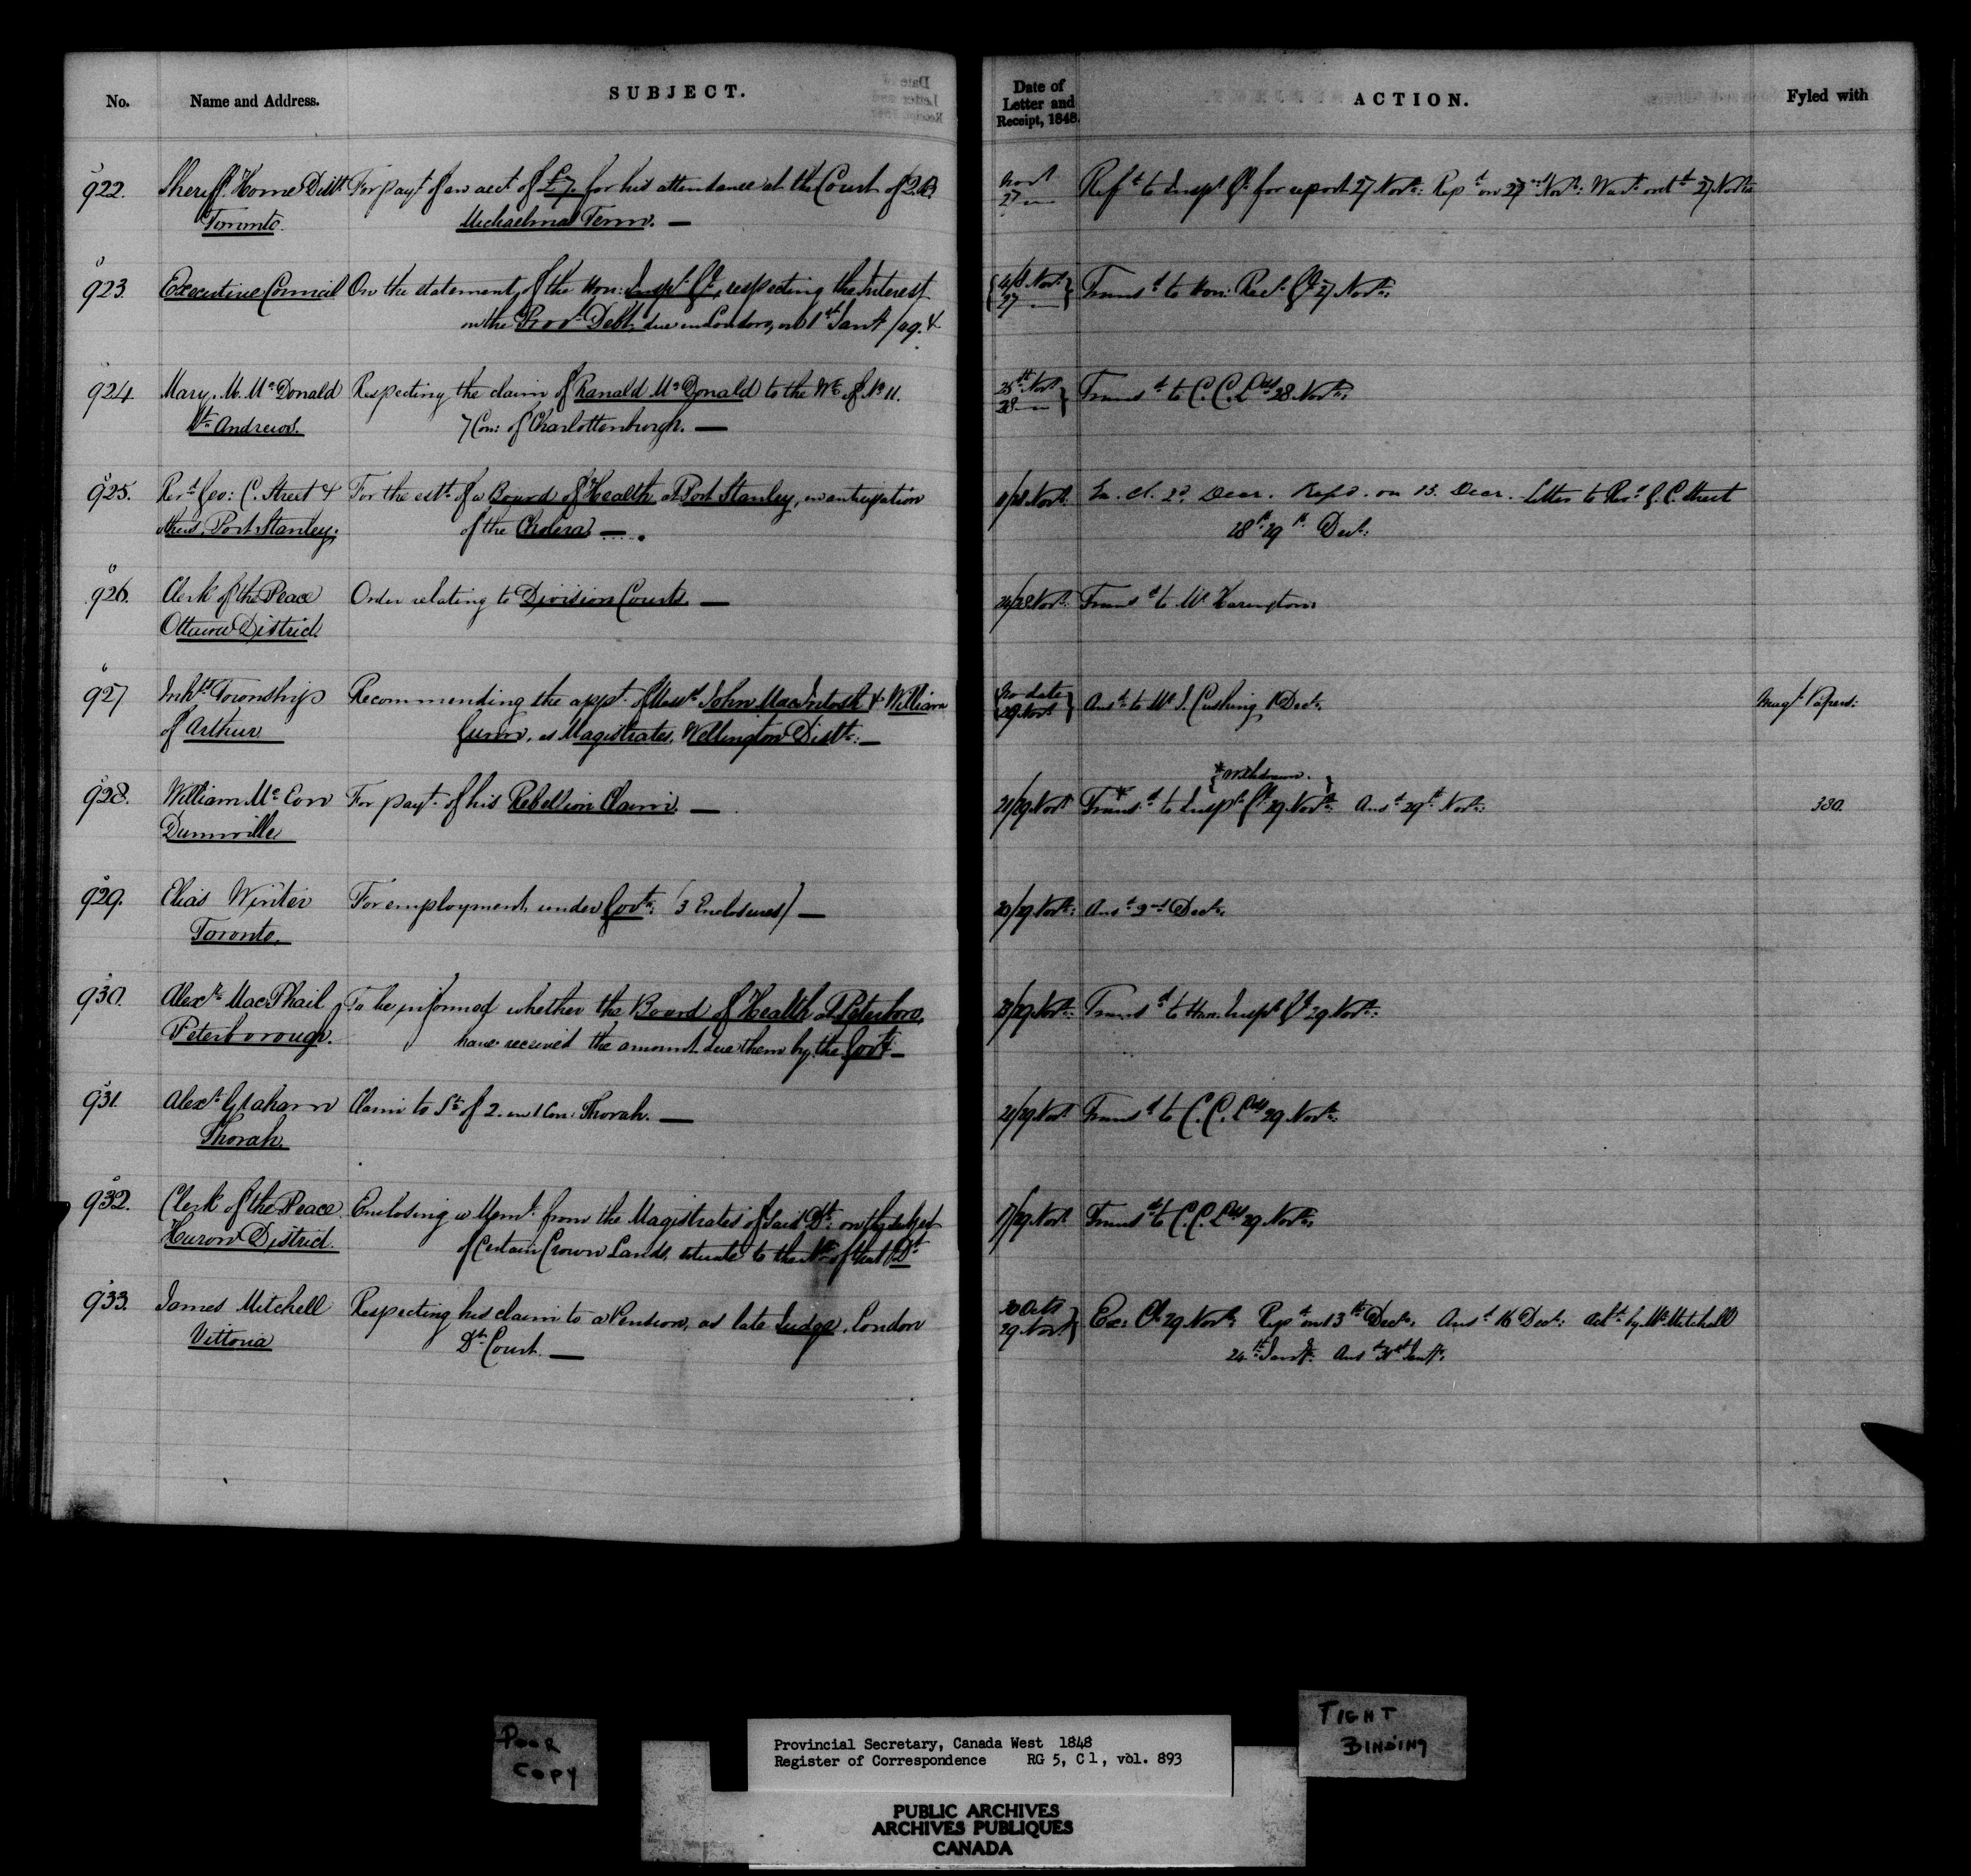 No.
Name and Address.
SUBJECT.
922. Sheriff Home Distt For payt of an acct of £7. for his attendance at the Court of Q.B.
Toronto. Michaelmas Term. —
923. Executive Council On the statement of the Hon: Inspr Gl, respecting the Interest
on the Provl Debt due in London, on 1st Jany /49. &
924. Mary M. McDonald Respecting the claim of Ranald McDonald to the W½ of No 11.
St Andrews. 7 Con: of Charlottenburgh. —
925. Revd Geo: C. Street & For the estt of a Board of Health at Port Stanley, in anticipation
others, Port Stanley; of the Cholera —
926. Clerk of the Peace Order relating to Division Courts. —
Ottawa District.
927 Inhts Township Recommending the appt of Messrs John MacIntosh & William
of Arthur Gunn, as Magistrates, Wellington Distt: —
928. William Mc Con For payt of his Rebellion Claim. —
Dunnville
929. Elias Winter For employment under Govt: (3 Enclosures) —
Toronto.
930. Alexr MacPhail To be informed whether the Board of Health at Peterboro,
Peterborough. have received the amount due them by the Govt —
931. Alexr Graham Claim to S½ of 2. in 1 Con: Thorah. —
Thorah.
932. Clerk of the Peace Enclosing a Meml from the Magistrates of said Dt: on the subject
Huron District. of Certain Crown Lands, situate to the No of that Dt
933. James Mitchell Respecting his claim to a Pension, as late Judge, London
Vittoria Dt Court. —
Date of
Letter and
Receipt, 1848.
ACTION.
Fyled with
Novr
27 — Refd to Inspr Gl for report 27 Novr: Repd on 27 Novr: Wart outd 27 Novr
Novr
27 — Transd to Hon: Recr Gl 27 Novr.
25th Novr
28 — Transd to C.C. Lds 28 Novr.
/28 Novr. Ex. Cl. 2d Decr. Repd. on 13. Decr. Letter to Revd G. C. Street
28th 29th Decr:
24/28 Novr. Transd to Mr Harington.
No date
29 Novr Ansd to Mr J. Cushing 1 Decr. Magt Papers:
* Withdrawn.
21/29 Novr * Transd to Inspr Gl 29 Novr: Ansd 29th Novr: 330.
20/29 Novr: Ansd 2nd Decr.
28/29 Novr: Transd to Hon. Inspr Gl 29 Novr:
21/29 Novr Transd to C.C. Lds 29 Novr.
17/29 Novr Transd to C.C. Lds 29 Novr.
30 Octr
29 Novr Ex: Cl. 29 Novr: Repd on 13th Decr. Ansd 16 Decr: by Mr Mitchell
24th Jany. Ansd 31st Jany.
POOR
COPY
TIGHT
BINDING
Provincial Secretary, Canada West 1848
Register of Correspondence RG 5, C 1, vol. 893
PUBLIC ARCHIVES
ARCHIVES PUBLIQUES
CANADA